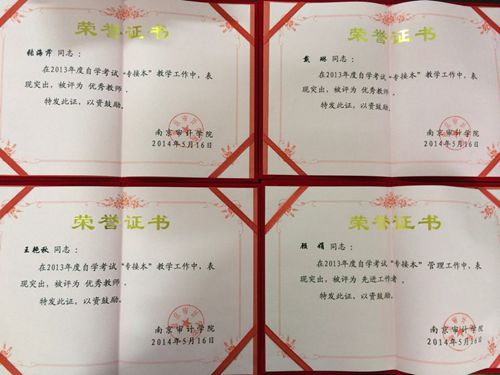 荣誉证书
张海芹 同志：
在2013年度自学考试“专接本”教学工作中，表
现突出，被评为 优秀教师 。
特发此证，以资鼓励。
南京审计学院
2014年5月16日
荣誉证书
戴 琳 同志：
在2013年度自学考试“专接本”教学工作中，表
现突出，被评为 优秀教师 。
特发此证，以资鼓励。
南京审计学院
2014年5月16日
荣誉证书
王艳秋 同志：
在2013年度自学考试“专接本”教学工作中，表
现突出，被评为 优秀教师 。
特发此证，以资鼓励。
南京审计学院
2014年5月16日
荣誉证书
顾 娟 同志：
在2013年度自学考试“专接本” 管理工作中，表
现突出，被评为 先进工作者 。
特发此证，以资鼓励。
南京审计学院
2014年5月16日